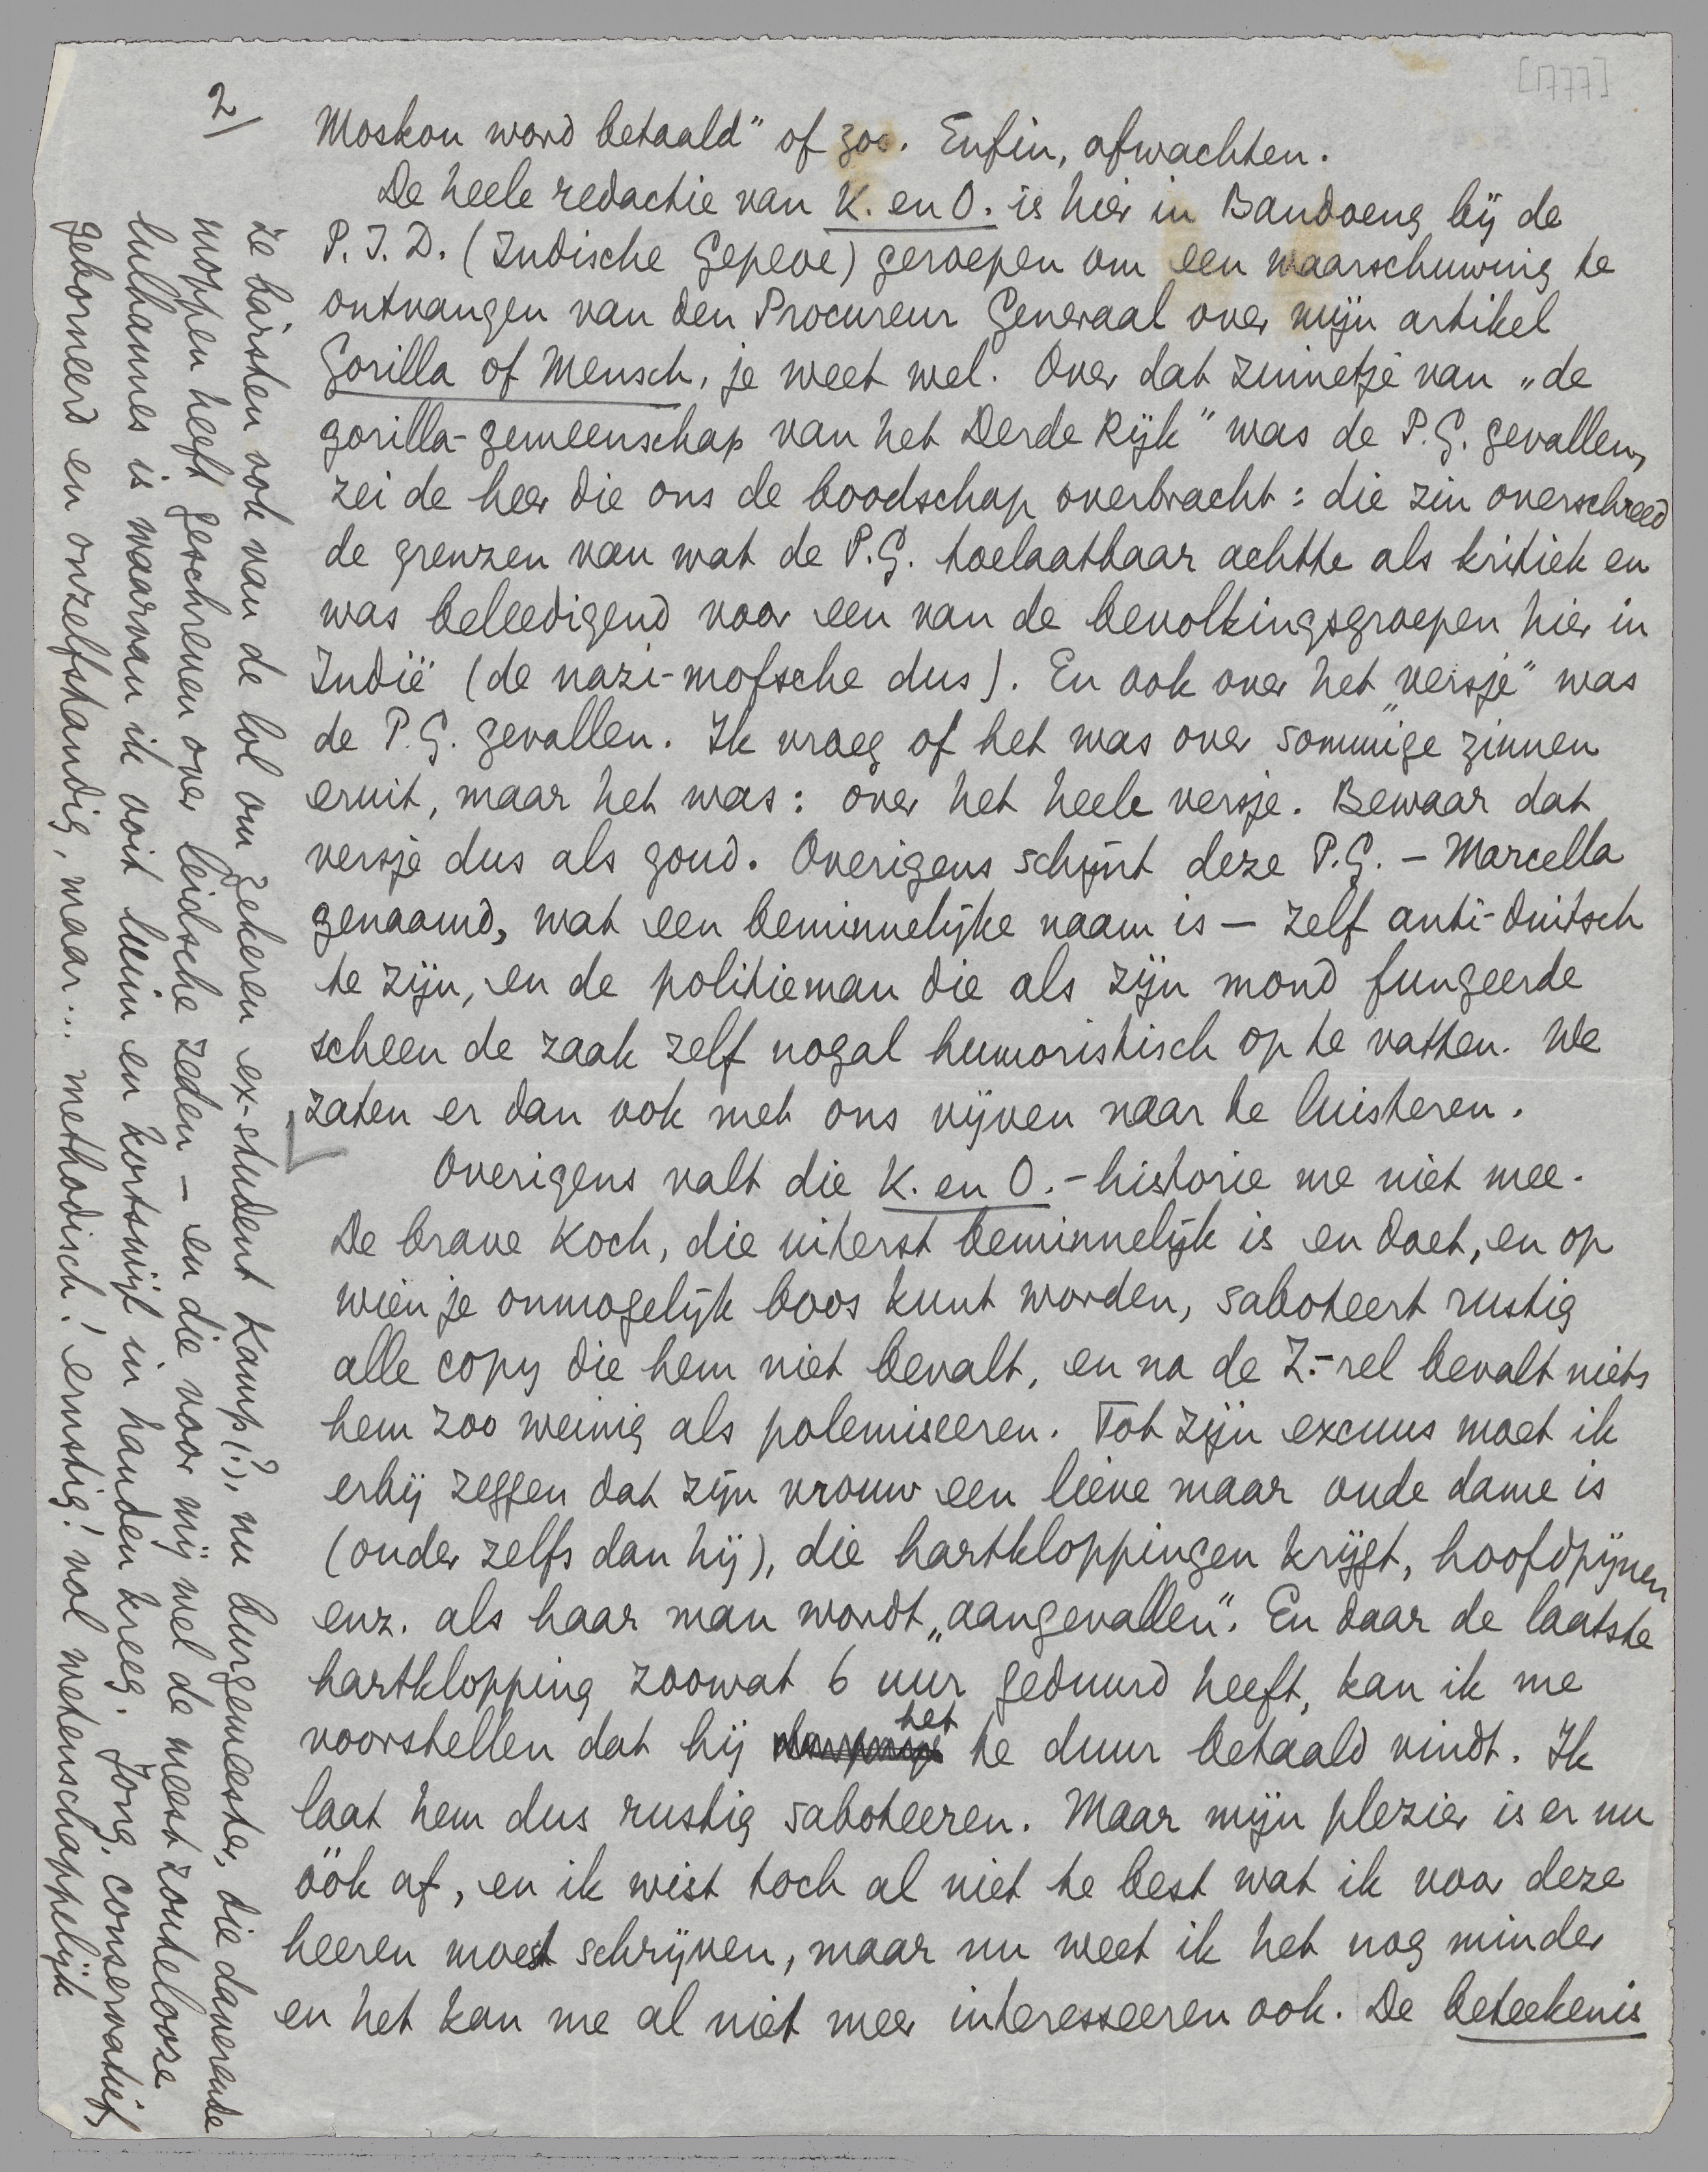 [1777]
2/
Moskou word betaald" of zoo. Enfin, afwachten.
De heele redactie van K. en O. is hier in Bandoeng bij de
P.I.D. (Indische Gepeoe) geroepen om een waarschuwing te
ontvangen van den Procureur Generaal over mijn artikel
Gorilla of Mensch, je weet wel. Over dat zinnetje van „de
gorilla-gemeenschap van het Derde Rijk" was de P.G. gevallen,
zei de heer die ons de boodschap overbracht: die zin overschreed
de grenzen van wat de P.G. toelaatbaar achtte als kritiek en
was beleedigend voor een van de bevolkingsgroepen hier in
Indië (de nazi-mofsche dus). En ook over het „versje" was
de P.G. gevallen. Ik vroeg of het was over sommige zinnen
eruit, maar het was: over het heele versje. Bewaar dat
versje dus als goud. Overigens schijnt deze P.G. – Marcella
genaamd, wat een beminnelijke naam is – zelf anti-duitsch
te zijn, en de politieman die als zijn mond fungeerde
scheen de zaak zelf nogal humoristisch op te vatten. We
zaten er dan ook met ons vijven naar te luisteren.
Overigens valt die K. en O.-historie me niet mee.
De brave Koch, die uiterst beminnelijk is en doet, en op
wien je onmogelijk boos kunt worden, saboteert rustig
alle copy die hem niet bevalt, en na de Z.-rel bevalt niets
hem zoo weinig als polemiseeren. Tot zijn excuus moet ik
erbij zeggen dat zijn vrouw een lieve maar oude dame is
(ouder zelfs dan hij), die hartkloppingen krijgt, hoofdpijnen
enz. als haar man wordt „aangevallen". En daar de laatste
hartklopping zoowat 6 uur geduurd heeft, kan ik me
voorstellen dat hij het te duur betaald vindt. Ik
laat hem dus rustig saboteeren. Maar mijn plezier is er nu
óók af, en ik wist toch al niet te best wat ik voor deze
heeren moest schrijven, maar nu weet ik het nog minder
en het kan me al niet meer interesseeren ook. De beteekenis
ze barsten ook van de lol om zekeren ex-student Kamp (?), nu burgemeester, die daverende
moppen heeft geschreven over leidsche zeden – en die voor mij wel de meest zoutelooze
lulhannes is waarvan ik ooit luim en kortswijl in handen kreeg. Jong, conservatief,
geborneerd en onzelfstandig, maar... methodisch! ernstig! vol wetenschappelijk